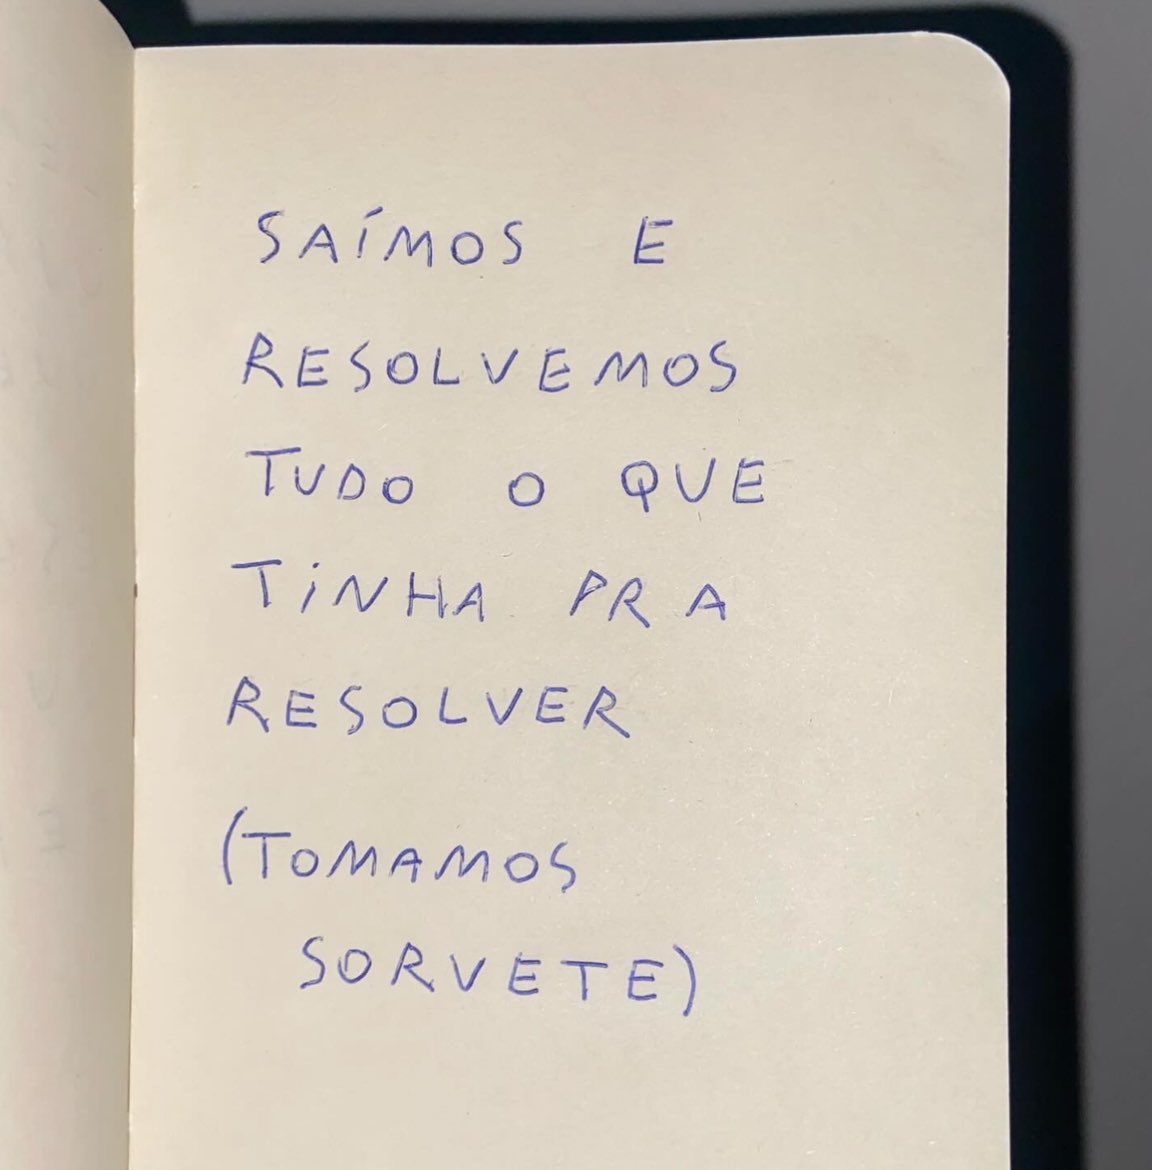 SAÍMOS E
RESOLVEMOS
TUDO O QUE
TINHA PRA
RESOLVER
(TOMAMOS
SORVETE)